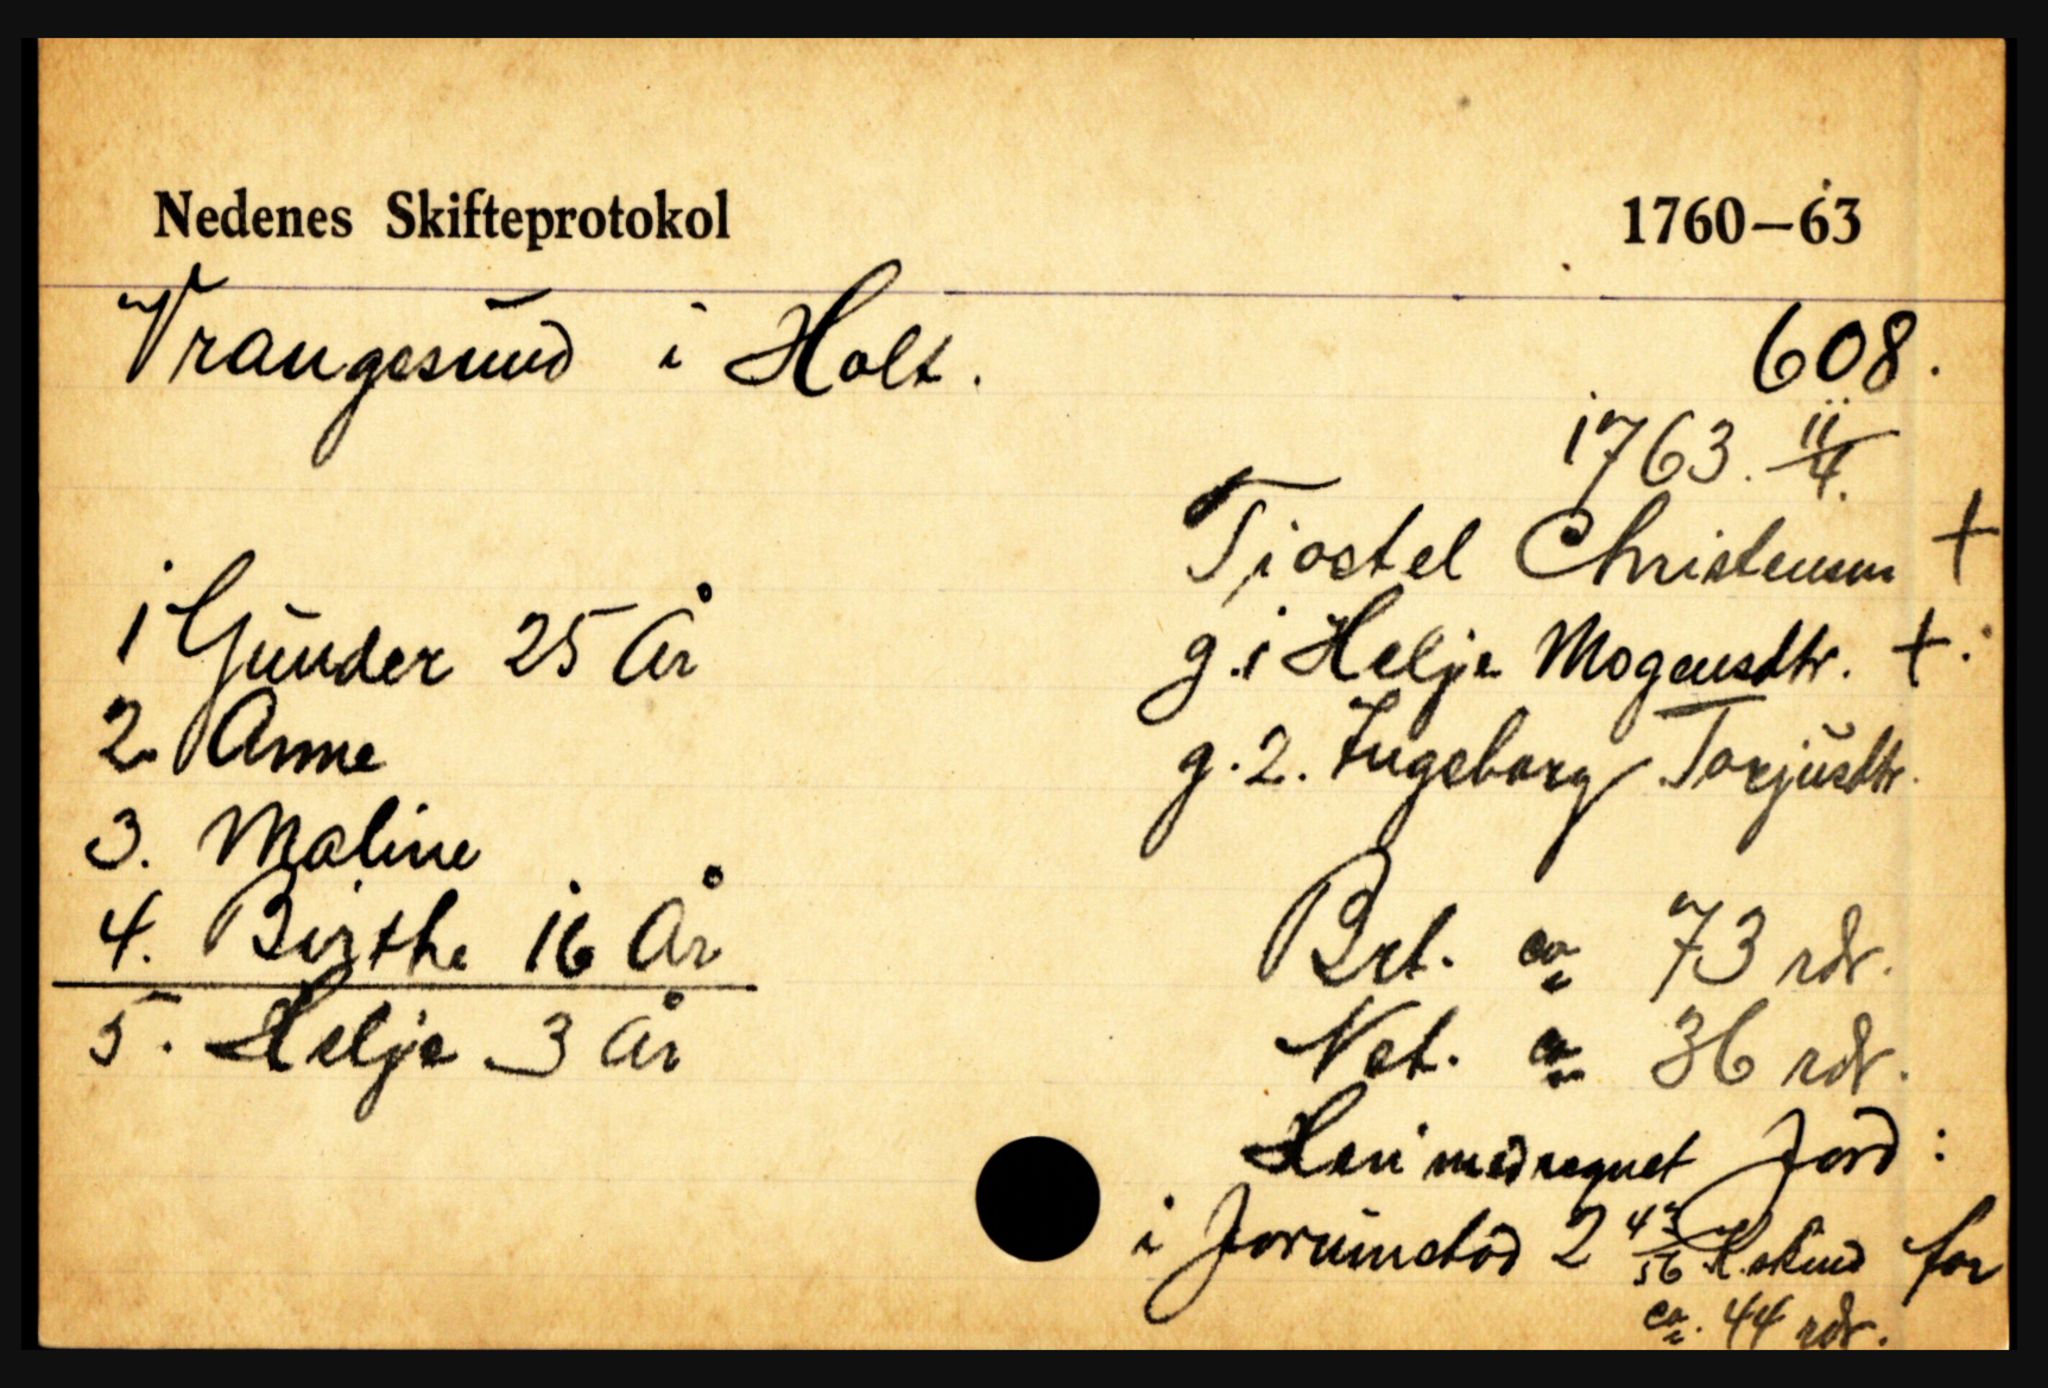 Nedenes Skifteprotokol 1760–63
Vrangesund i Holt. 608.
1763. 11/4.
Tjostel Christensen +
g.1 Helje Mogensdtr. +.
g.2. Ingeborg Torjusdtr.
1 Gunder 25 År
2. Anne
3. Maline
4. Birthe 16 År
5. Helje 3 År
Brt. ca 73 rdr.
Net. ca 36 rdr.
Heri medregnet Jord:
i Jorumstød 2 43/56 K.skind for
ca. 44 rdr.